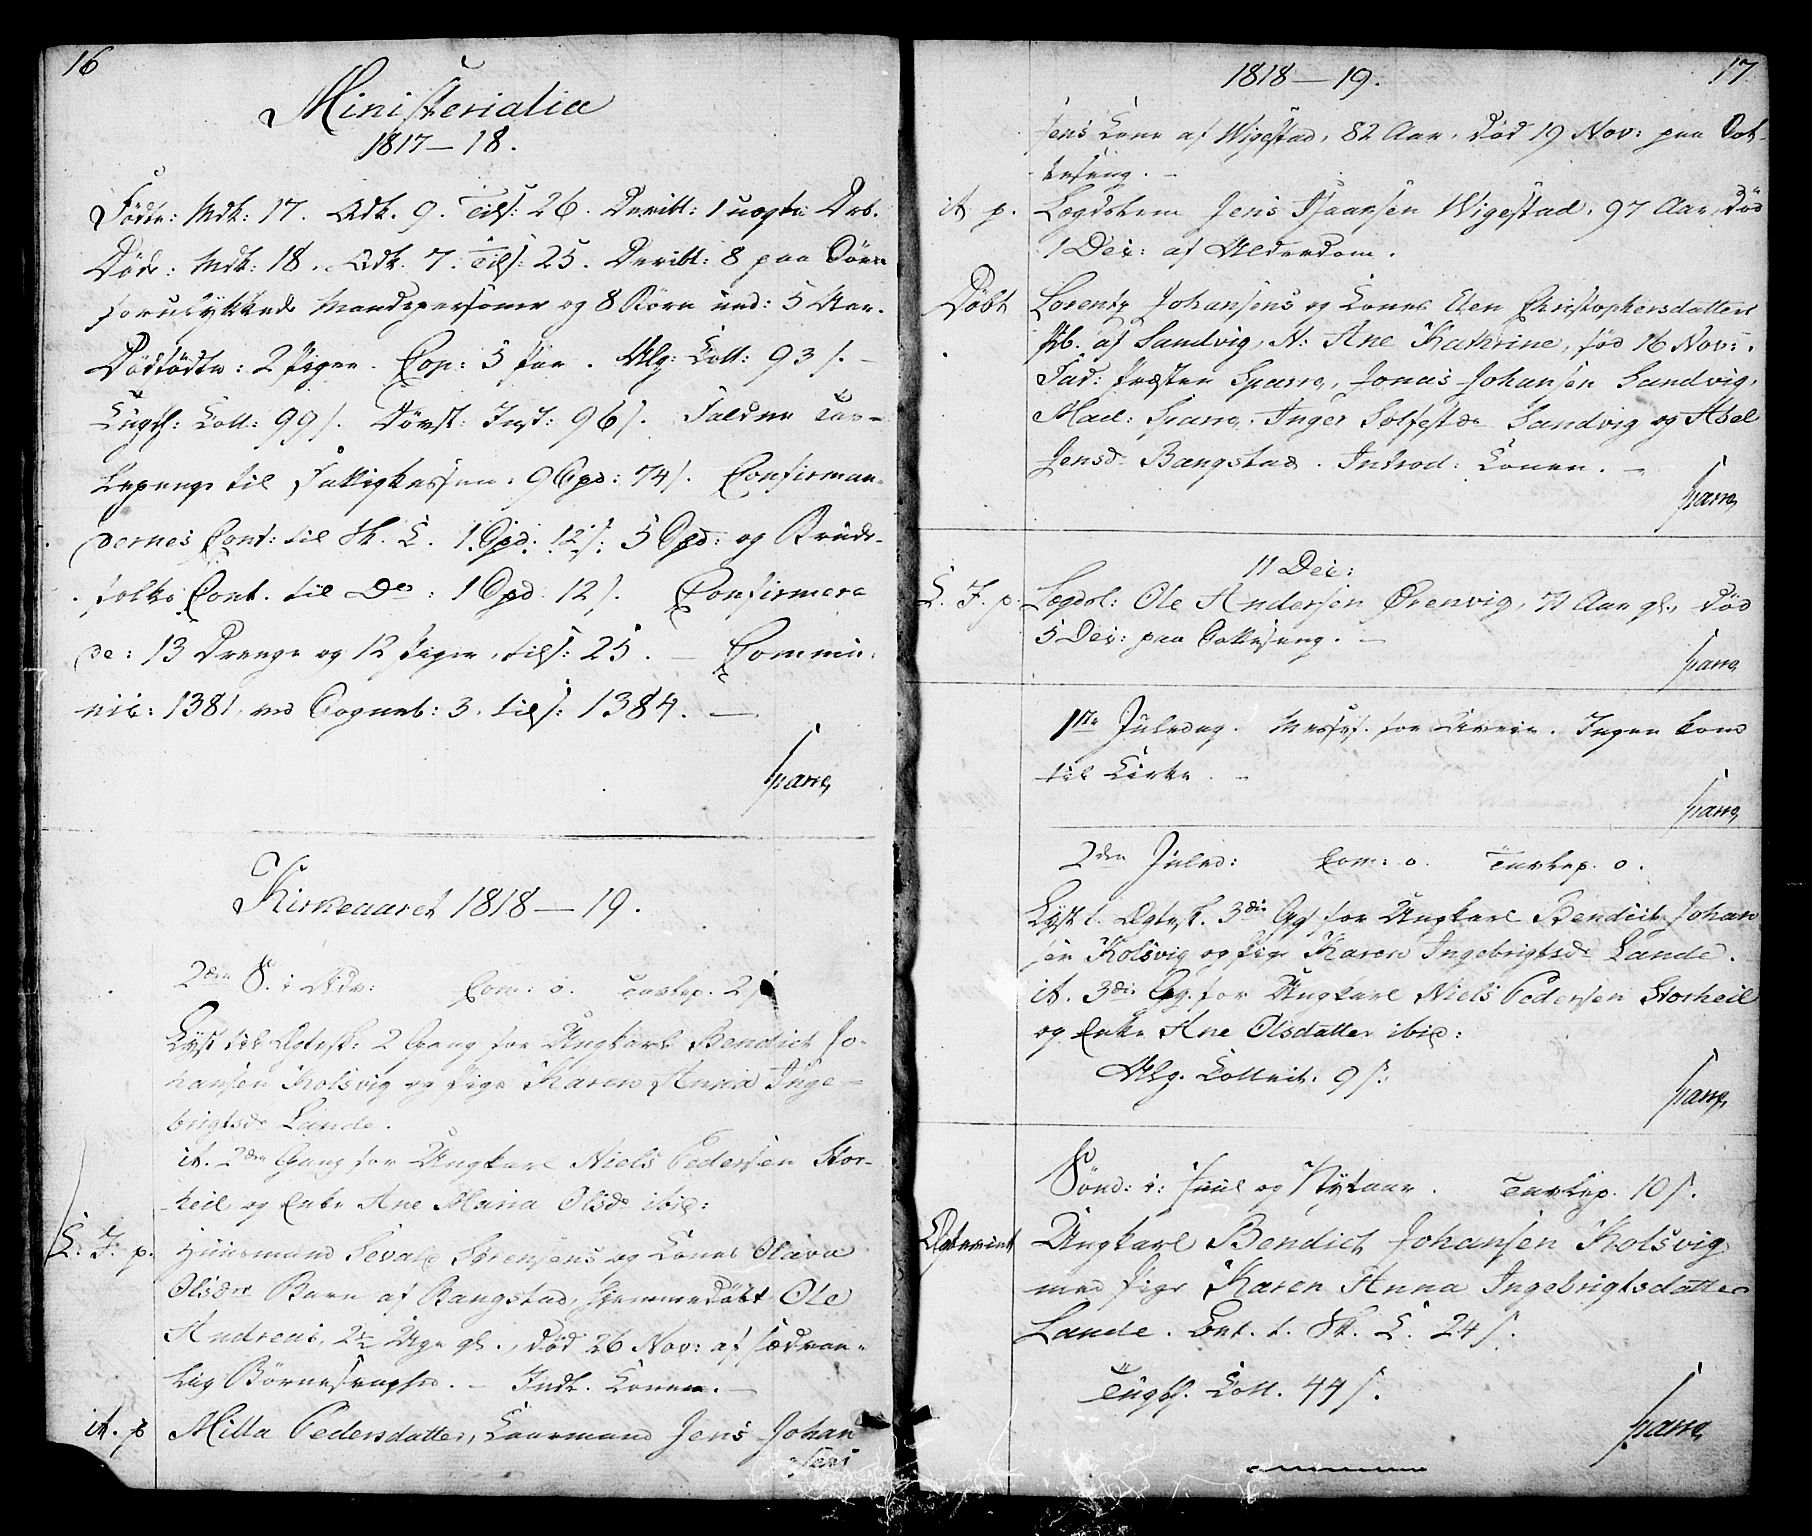 16
Ministerialia
1817–18.
Fødte: Mdk: 17. Qdk. 9. Tils: 26. Deribl: 1 uægte Drb.
Døde: Mdk: 18. Qdk. 7. Tils: 25. Deribl: 8 paa Søen
forulykkede Mandspersoner og 8 Børn und: 5 Aar.
Dødfødte: 2 Piger. Cop: 5 Par. Alg: Coll: 93 s. –
Coll: 99 s. Inst: 96 s. Faldne Tav-
lepenge til Fattigkassen: 9 Spd: 74 s. Confirman-
dernes Cont: til Sk. C. 1 Spd: 12 s: 5 Spd: og Brude-
folks Cont. til Do: 1 Spd 12 s. Confirmere
de: 13 Drenge og 12 Piger, tils: 25. – Commu-
nic: 1381, ved Sogneb: 3. tils: 1384. –
Sparre
Kirkeaaret 1818–19.
2den S. i Adv: Com: 0. Tavlep. 2 s
Lyst til Ægtesk: 2 Gang for Ungkarl Bendict Jo-
hansen Kolsvig og Pige Karen Anna Inge-
brigtsdr Lande.
it. 2den Gang for Ungkarl Niels Pedersen Stor-
heil og Enke Ane Maria Olsdr ibid:
C: J. p. Huusmand Sevald Sørensens og Kones Olava
Olsdrs Barn af Bangstad, hjemmedøbt Ole
Andreas, 2½ Uge gl., død 26 Nov: af sædvan-
lig Børnesvaghed. – Indl. Konen. –
it. p Milla Pedersdatter, Laarmand Jens Johan
sens
1818–19. 17
sens Kone af Wigestad, 82 Aar, død 19 Nov: paa Sot-
teseng. –
it p. Lægdslem Jens Isaarsen Wigestad, 97 Aar, død
1 Dec: af Alderdom.
Døbt Lorentz Johansens og Kones Elen Christophersdatters
Pb. af Sandvig, N: Ane Kathrine, fød 16 Nov:.
Fad: Præsten Sparre, Jonas Johansen Sandvig,
Mad: Sparre, Inger Solfestdr Sandvig og Abel
Jensdr Bangstad. Introd: Konen. –
Sparre
11 Dec:
C. J. p. Lægdsl: Ole Andersen Ørenvig, 71 Aar gl., død
5 Dec: paa Sotteseng. –
Sparre
1ste Juledag. Messef. for Uveir. Ingen kom
til Kirke. –
Sparre
2den Juled: Com: 0. Tavlep. 0.
Lyst t. Ægtesk. 3die Gg for Ungkarl Bendict Johan
sen Kolsvig og Pige Karen Ingebrigtsdr Lande.
it. 3die Gg. for Ungkarl Niels Pedersen Storheil
og Enke Ane Olsdatter ibid:
Alg. Collect. 9 s.
Sparre
Sønd: i: Juul og Nytaar. Tavlep. 10 s.
Ægteviet Ungkarl Bendict Johansen Kolsvig
med Pige Karen Anna Ingebrigtsdatter
Lande. Cnt. t. Sk. C. 24 s.
Coll. 44 s.
Sparre